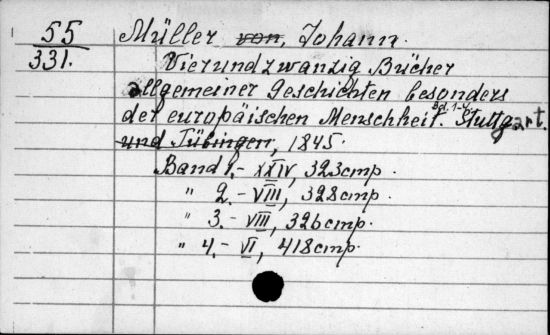 55 Müller von, Johann.
331. Vierundzwanzig Bücher
allgemeiner Geschichten besonders
der europäischen Menschheit. Bd. 1-4. Stuttgart.
und Tübingen, 1845.
Band 1.- XXIV, 323 cmp.
" 2.- VIII, 328 cmp.
" 3.- VIII, 326 cmp.
" 4.- VI, 418 cmp.